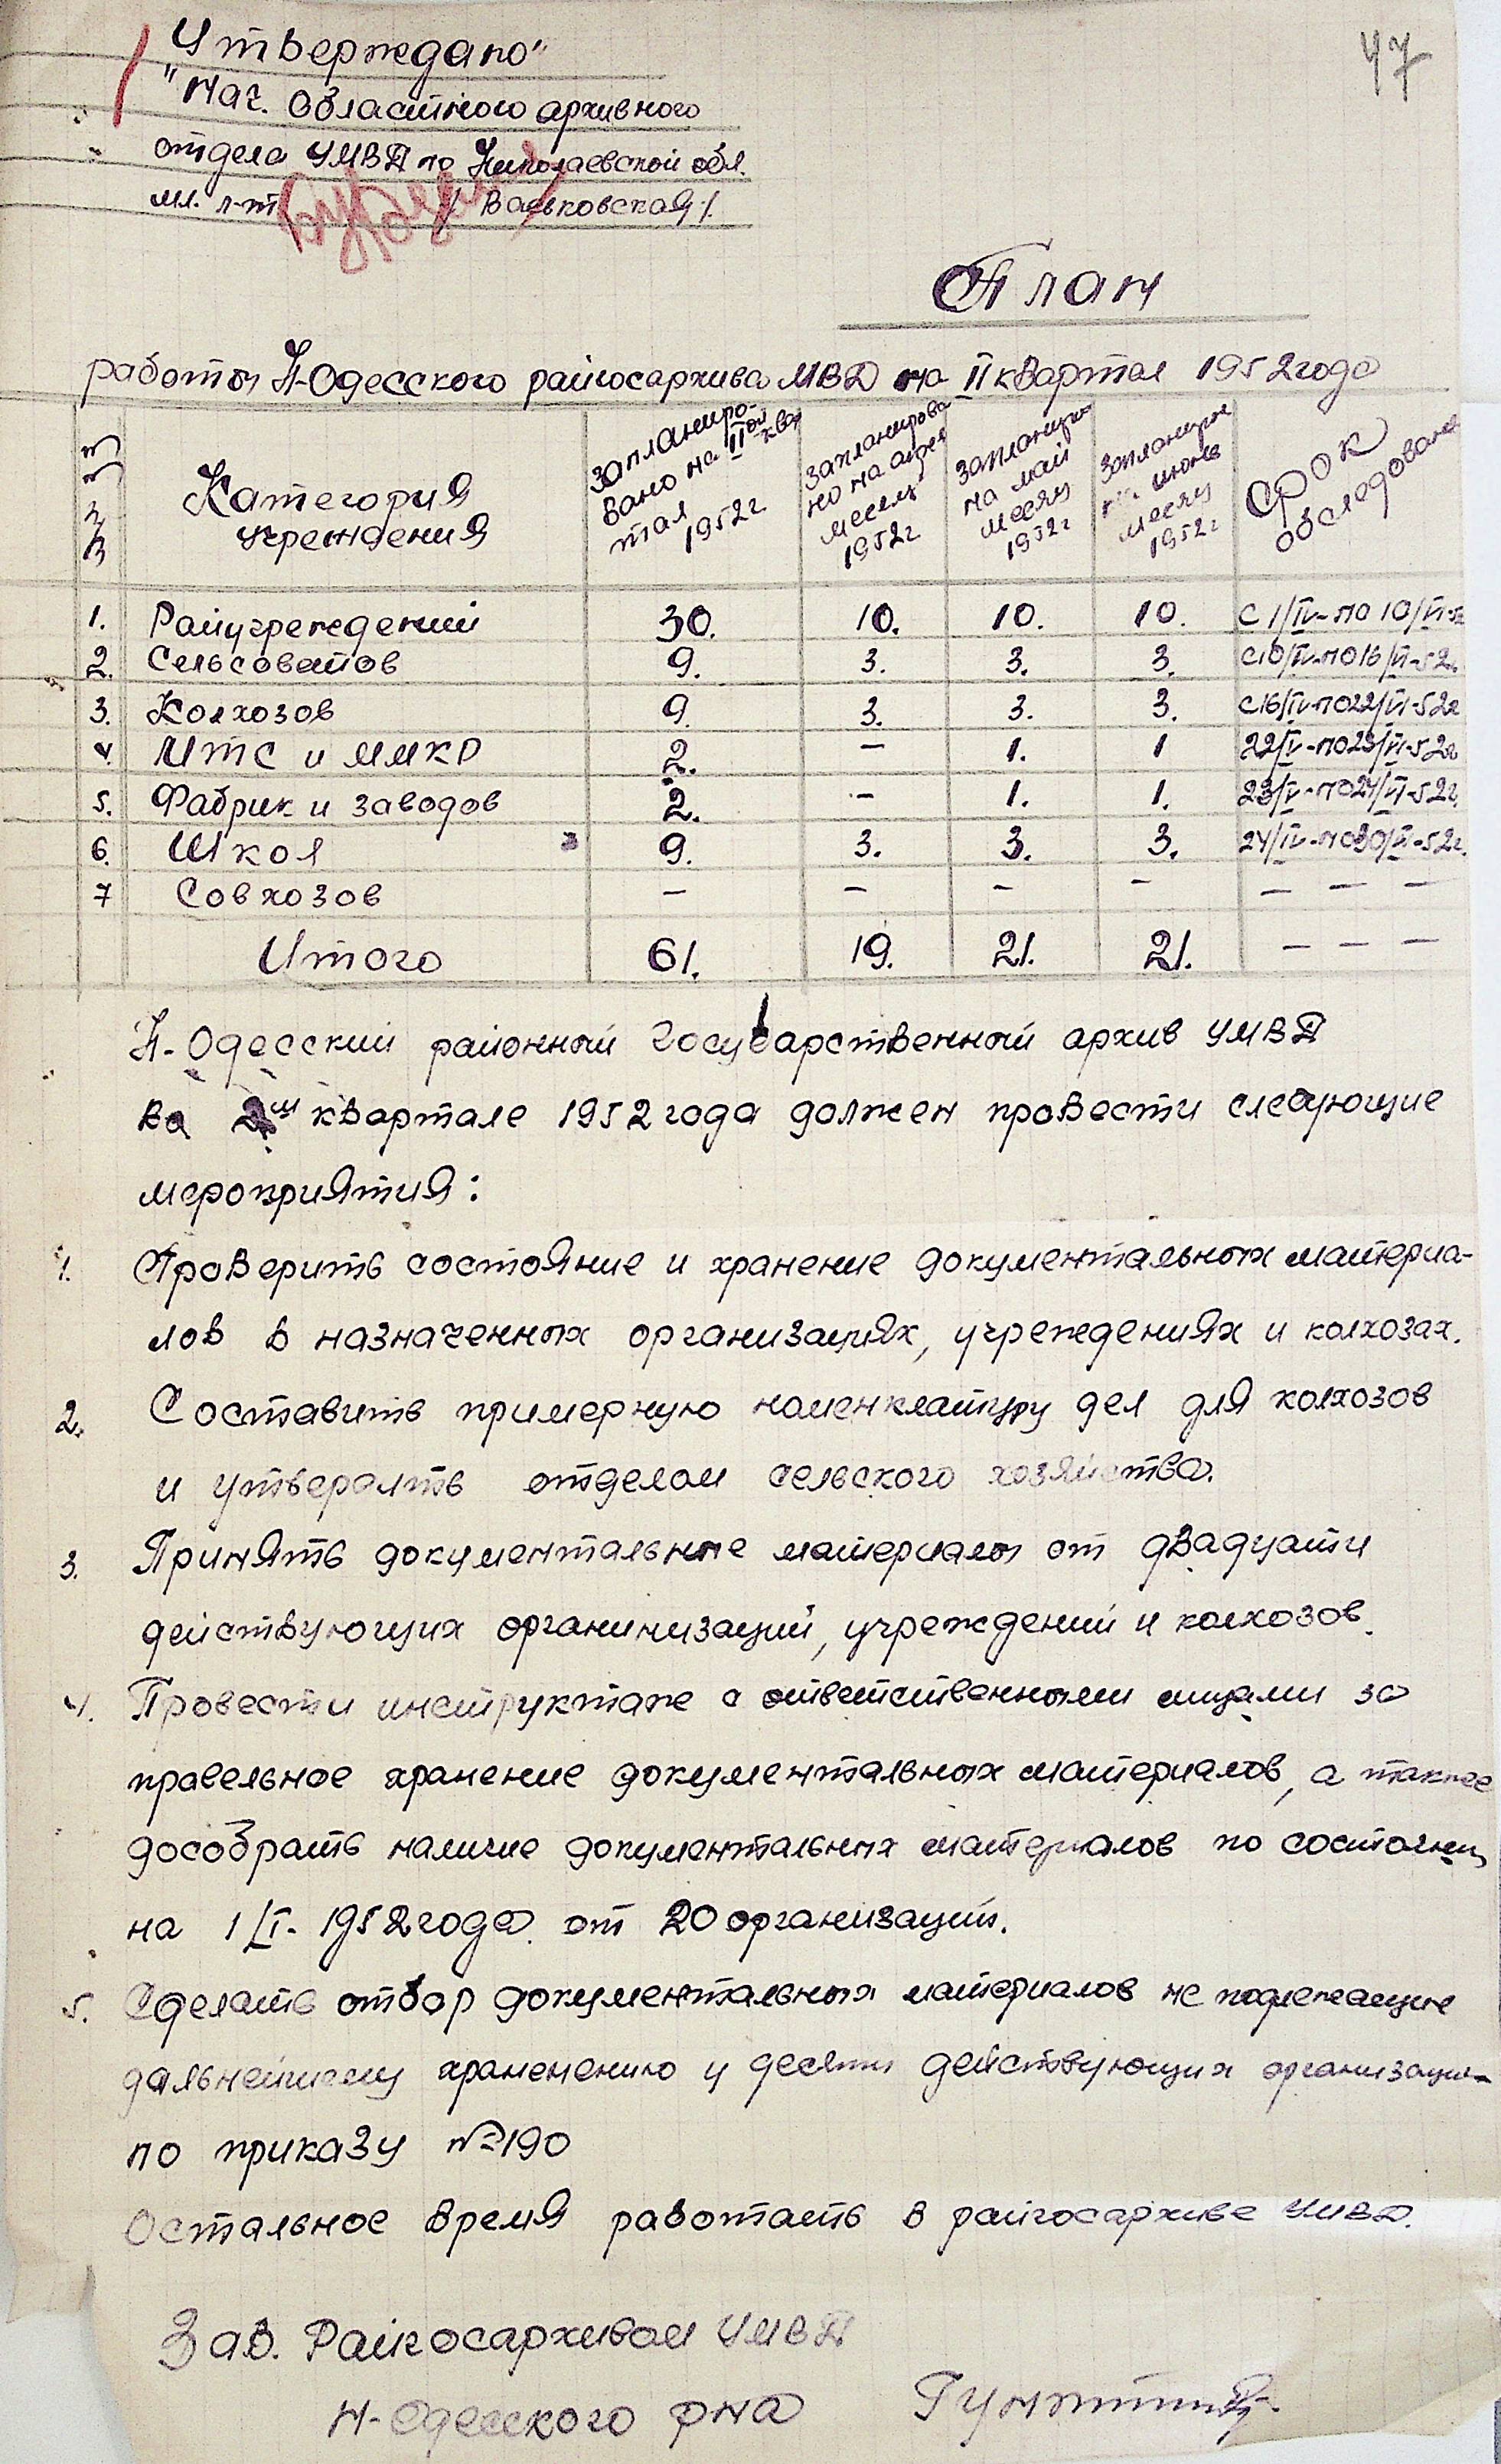 47
Утверждаю"
"Нач. Областного архивного
отдела УМВД по Николаевской обл.
мл. л-т / Васьковская/.
План
работы Н-Одесского райгосархива МВД на II квартал 1952 года
Категория учреждения
запланировано на II ой квартал 1952 г.
запланировано на апрель месяц 1952 г.
на май месяц 1952 г.
июнь месяц 1952 г.
Срок обследования
1. Райучреждений 30. 10. 10. 10. С 1/IV-по 10/VI-52
2. Сельсоветов 9. 3. 3. 3. С10/IV-по16/VI-52г.
3. Колхозов 9. 3. 3. 3. С16/IV-по22/VI-52г
4. МТС и ММКР 2. – 1. 1 22/IV-по23/VI-52г
5. Фабрик и заводов 2. – 1. 1. 23/IV-по24/VI-52г.
6. Школ 9. 3. 3. 3. 24/IV-по30/VI-52г.
7 Совхозов – – – – – – –
Итого 61. 19. 21. 21. – – –
Н-Одесский районный государственный архив УМВД
во 2м квартале 1952 года должен провести следующие
мероприятия:
1. Проверить состояние и хранение документальных материа-
лов в назначенных организациях, учреждениях и колхозах.
2. Составить примерную номенклатуру дел для колхозов
и утвердить отделом сельского хозяйства.
3. Принять документальные материалы от двадцати
действующих органинизаций, учреждений и колхозов.
4. Провести инструктаже с ответственными лицами за
правельное хранение документальных материалов, а также
дособрать наличие документальных материалов по состоянию
на 1/I-1952 года. от 20 организаций.
5. Сделать отбор документальных материалов не подлежащие
дальнейшему хранению у десяти действующих организаций
по приказу №190
Остальное время работать в райгосархиве УМВД.
Зав. Райгосархивом УМВД
Н-Одесского р-на